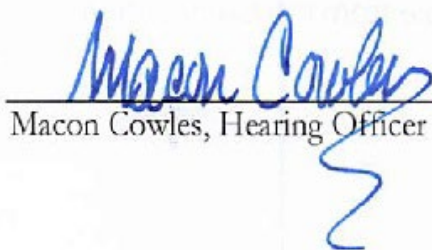 Macon Cowles
Macon Cowles, Hearing Officer